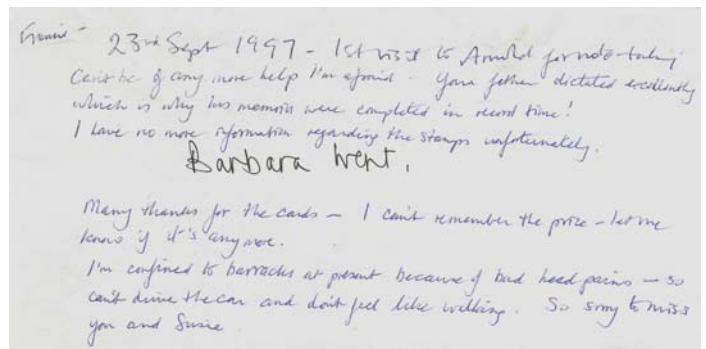 23rd Sept 1997 - 1st visit to Arnold for note-taking
Can't be of any more help I'm afraid - Your father dictated excellently
which is why his memoirs were completed in record time!
I have no more information regarding the stamps unfortunately.
Barbara Went.
Many thanks for the cards - I can't remember the price - let me
know if it's any more.
I'm confined to barracks at present because of bad head pains - so
can't drive the car and don't feel like walking. So sorry to miss
you and Susie